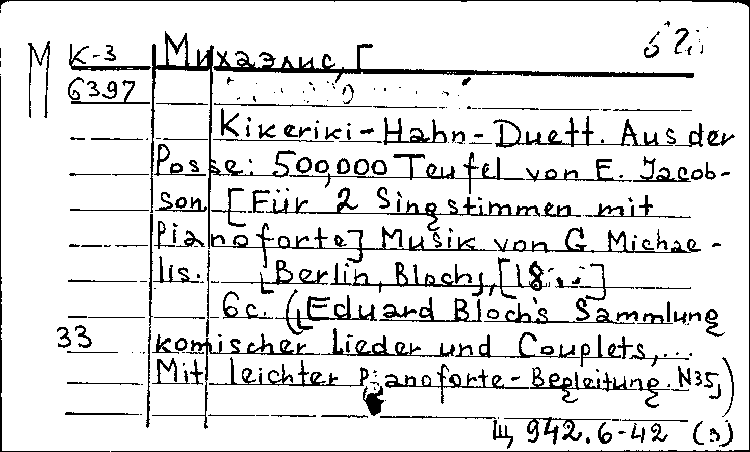 М К-3 Михаэлис, [
6397
Kikeriki-Hahn-Duett. Aus der
Posse: 500,000 Teufel von E. Jacob-
son [Für 2 Singstimmen mit
Pianoforte] Musik von G. Michae-
lis. [Berlin, Bloch], [18..]
6 c. ([Eduard Bloch's Sammlung
33 komischer Lieder und Couplets,...
Mit leichter Pianoforte-Begleitung. N35])
Щ 942.6-42 (3)